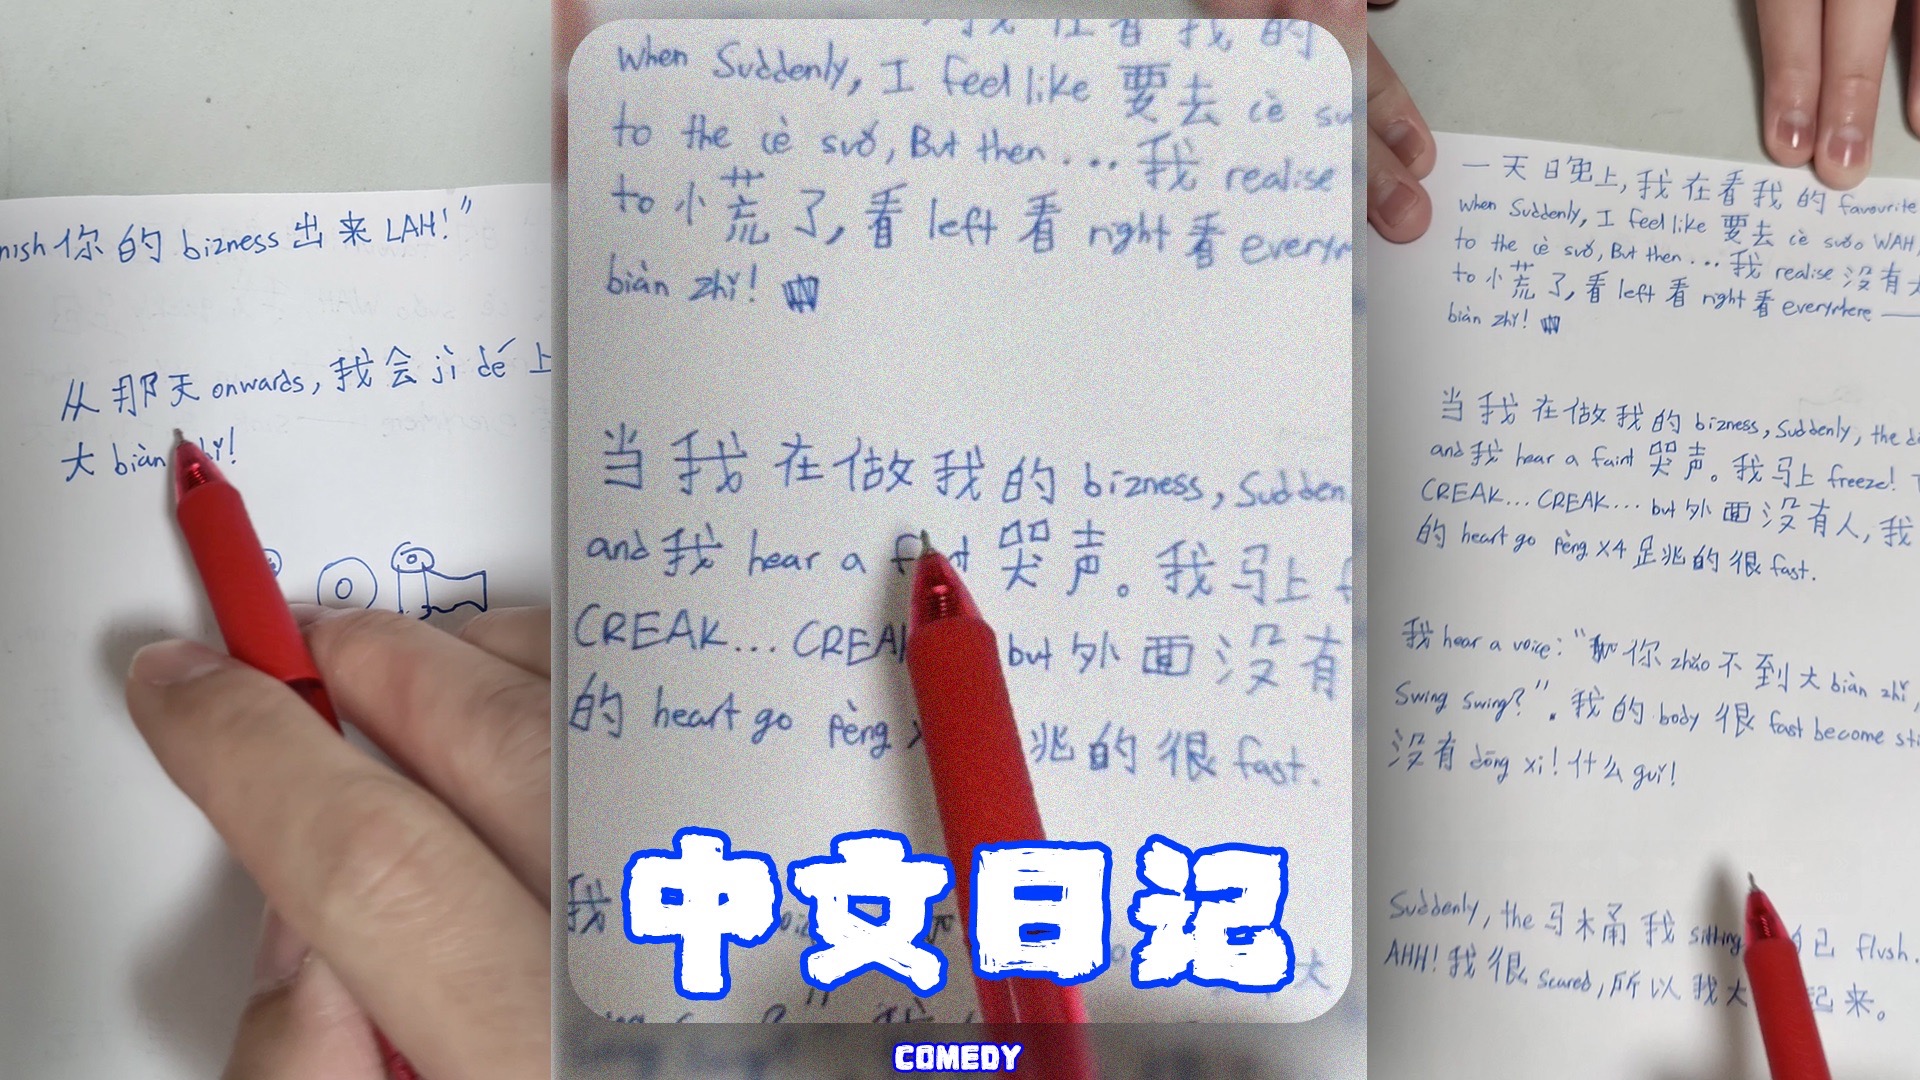 nish 你的 bizness 出来 LAH!”
从那天 onwards, 我会 jì dé 上
大 biàn
我在看我的
when Suddenly, I feel like 要去 cè su
to the cè suǒ, But then ... 我 realise
to 小荒了, 看 left 看 right 看 everyrh
biàn zhǐ!
当我在做我的 bizness, Sudden
and 我 hear a faint 哭声。我马上 f
CREAK... CREAK but 外面没有
的 heart go pèng 兆的很 fast.
我
中文日记
COMEDY
一天日免上, 我在看我的 favourite
when Suddenly, I feel like 要去 cè suǒ WAH,
to the cè suǒ, But then ... 我 realise 没有大
to 小荒了, 看 left 看 right 看 everyrhere
biàn zhǐ!
当我在做我的 bizness, Suddenly, the do
and 我 hear a faint 哭声。我马上 freeze!
CREAK... CREAK... but 外面没有人, 我
的 heart go pèng X4 足兆的很 fast.
我 hear a voice: “你 zhǎo 不到大 biàn zhǐ,
Swing swing?”. 我的 body 很 fast become sti
没有 dōng xi! 什么 guǐ!
Suddenly, the 马木甬我 sitting 自己 flush.
AHH! 我很 scared, 所以我大 起来。